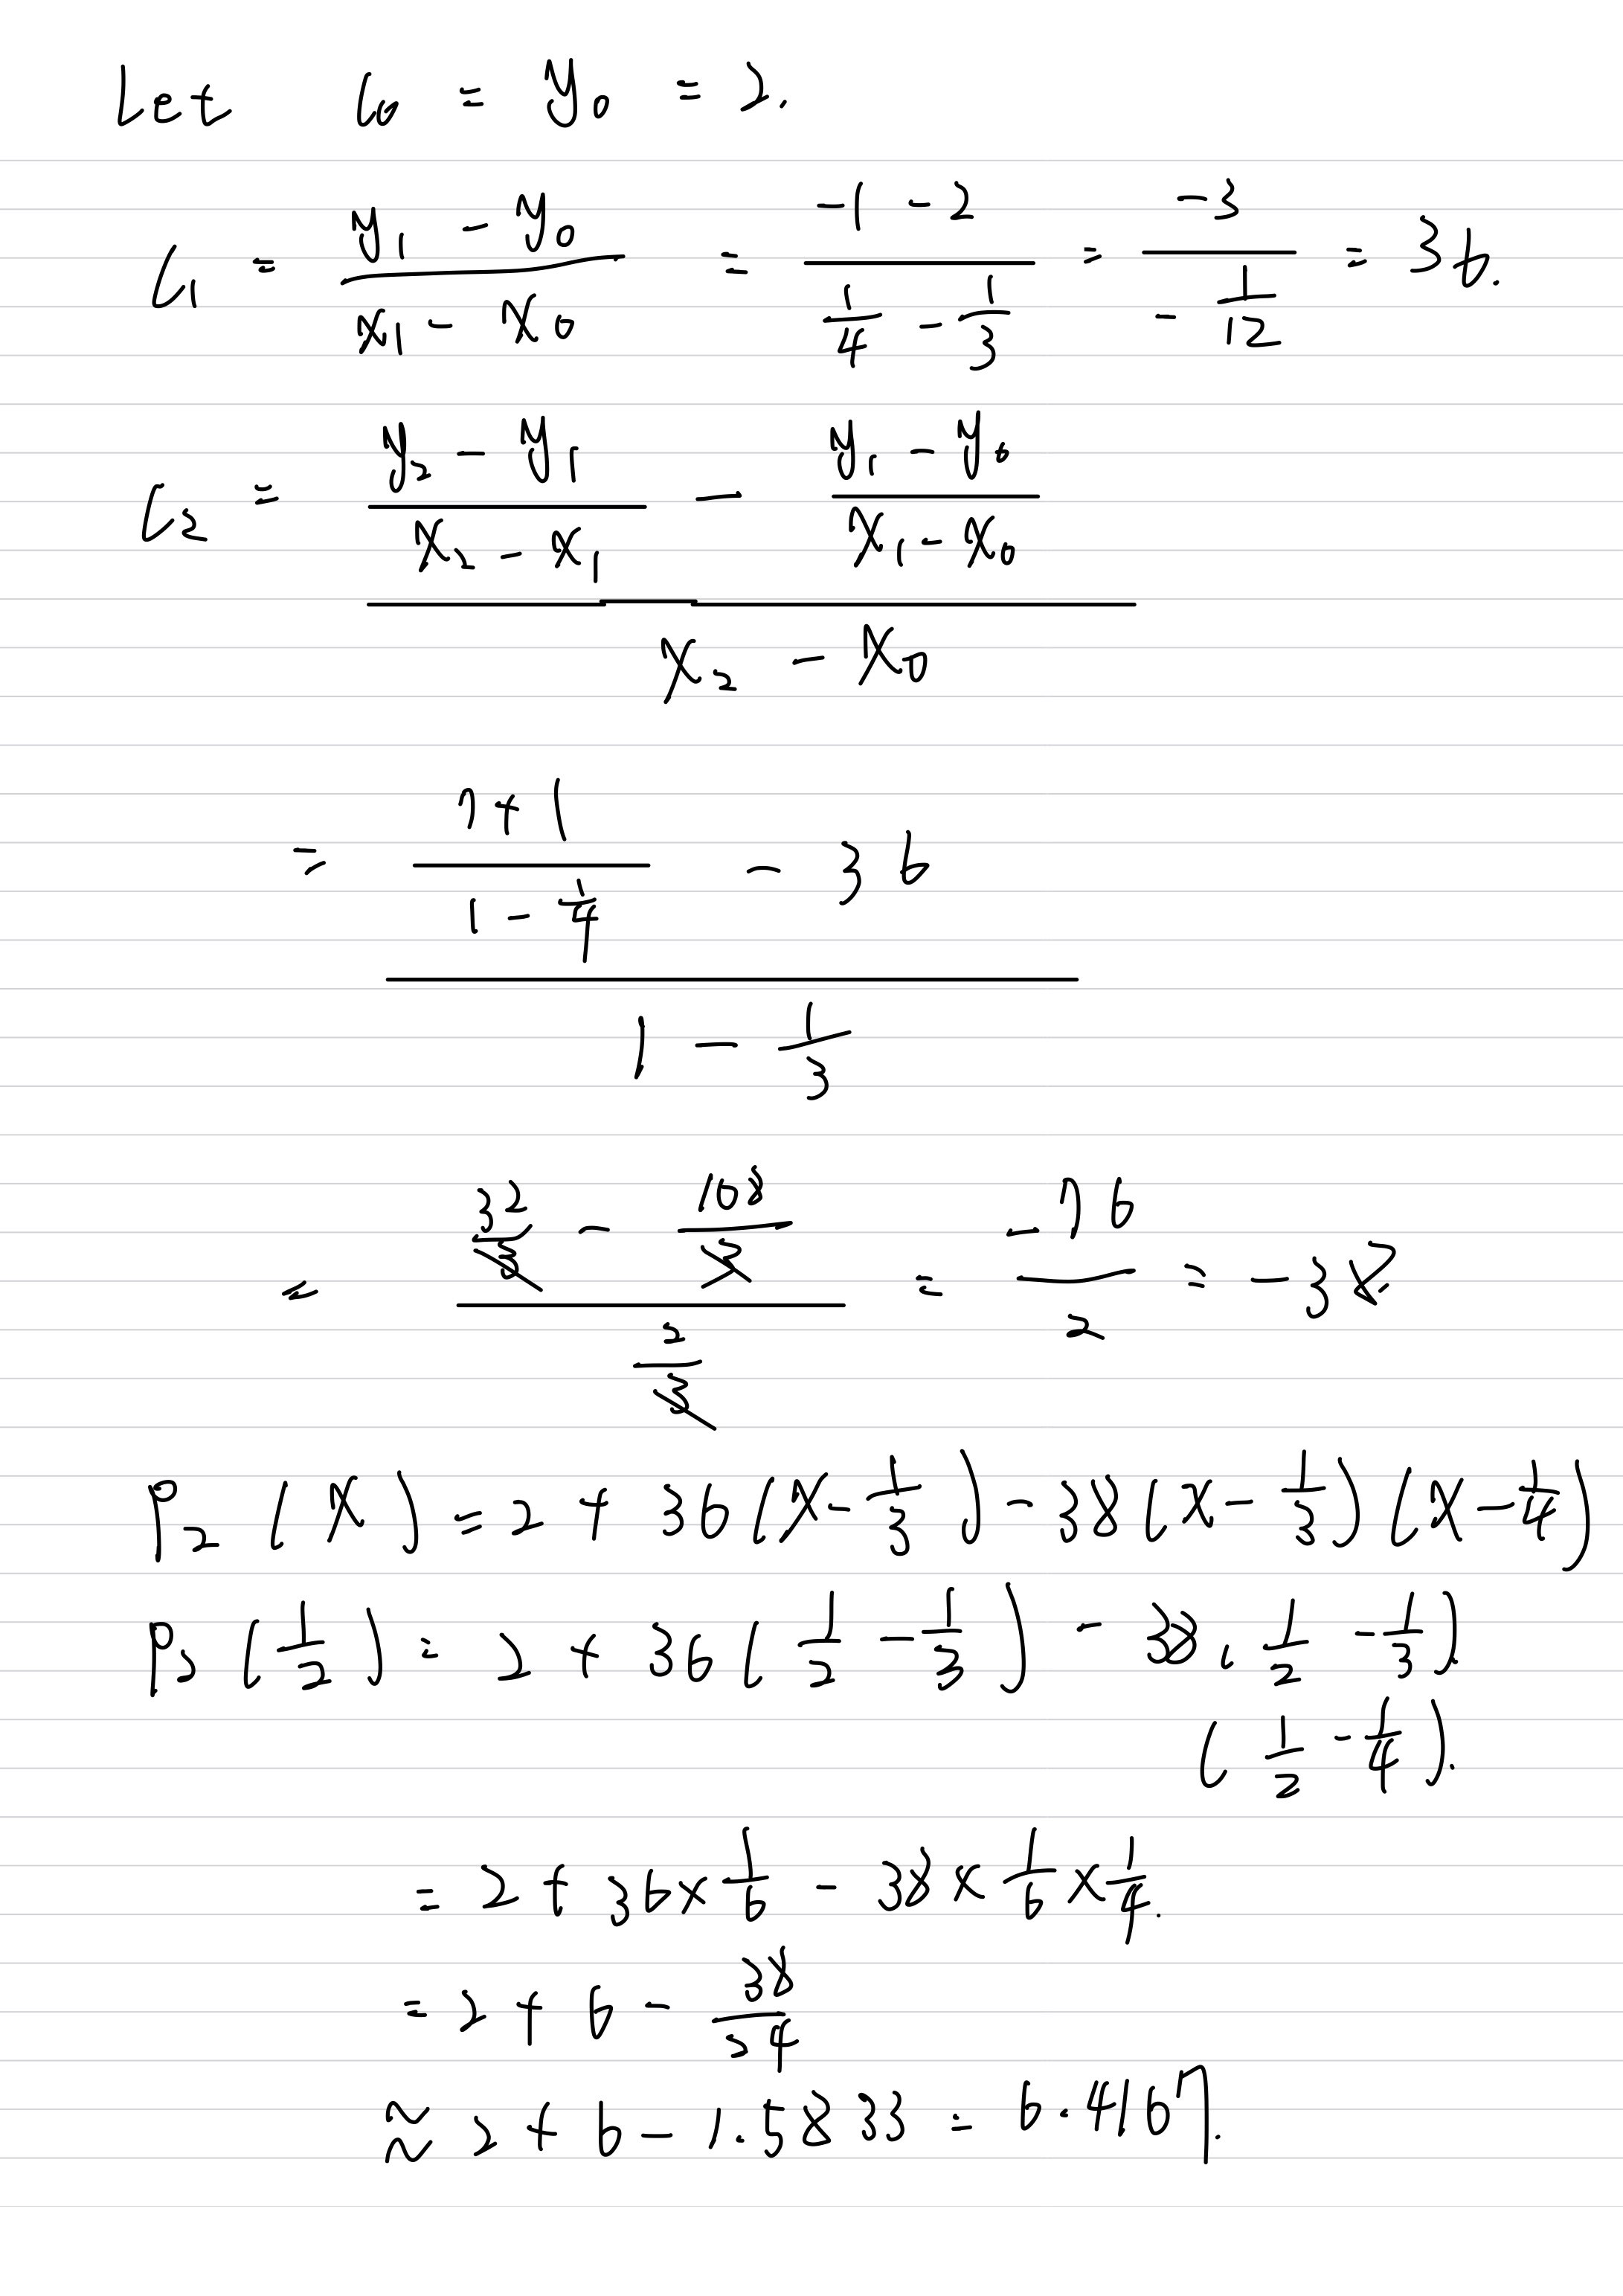 Let C₀ = y₀ = 2.
C₁ = (y₁ - y₀)/(x₁ - x₀) = (-1 - 2)/(1/4 - 1/3) = (-3)/(-1/12) = 36.
C₂ = ((y₂ - y₁)/(x₂ - x₁) - (y₁ - y₀)/(x₁ - x₀))/(x₂ - x₀)
= ((7 + 1)/(1 - 1/4) - 36)/(1 - 1/3)
= (32/3 - 108/3)/(2/3) = -76/2 = -38.
P₂(x) = 2 + 36(x - 1/3) - 38(x - 1/3)(x - 1/4)
P₂(1/2) = 2 + 36(1/2 - 1/3) - 38(1/2 - 1/3).
(1/2 - 1/4).
= 2 + 36 × 1/6 - 38 × 1/6 × 1/4.
= 2 + 6 - 38/24
≈ 2 + 6 - 1.5833 = 6.4167.